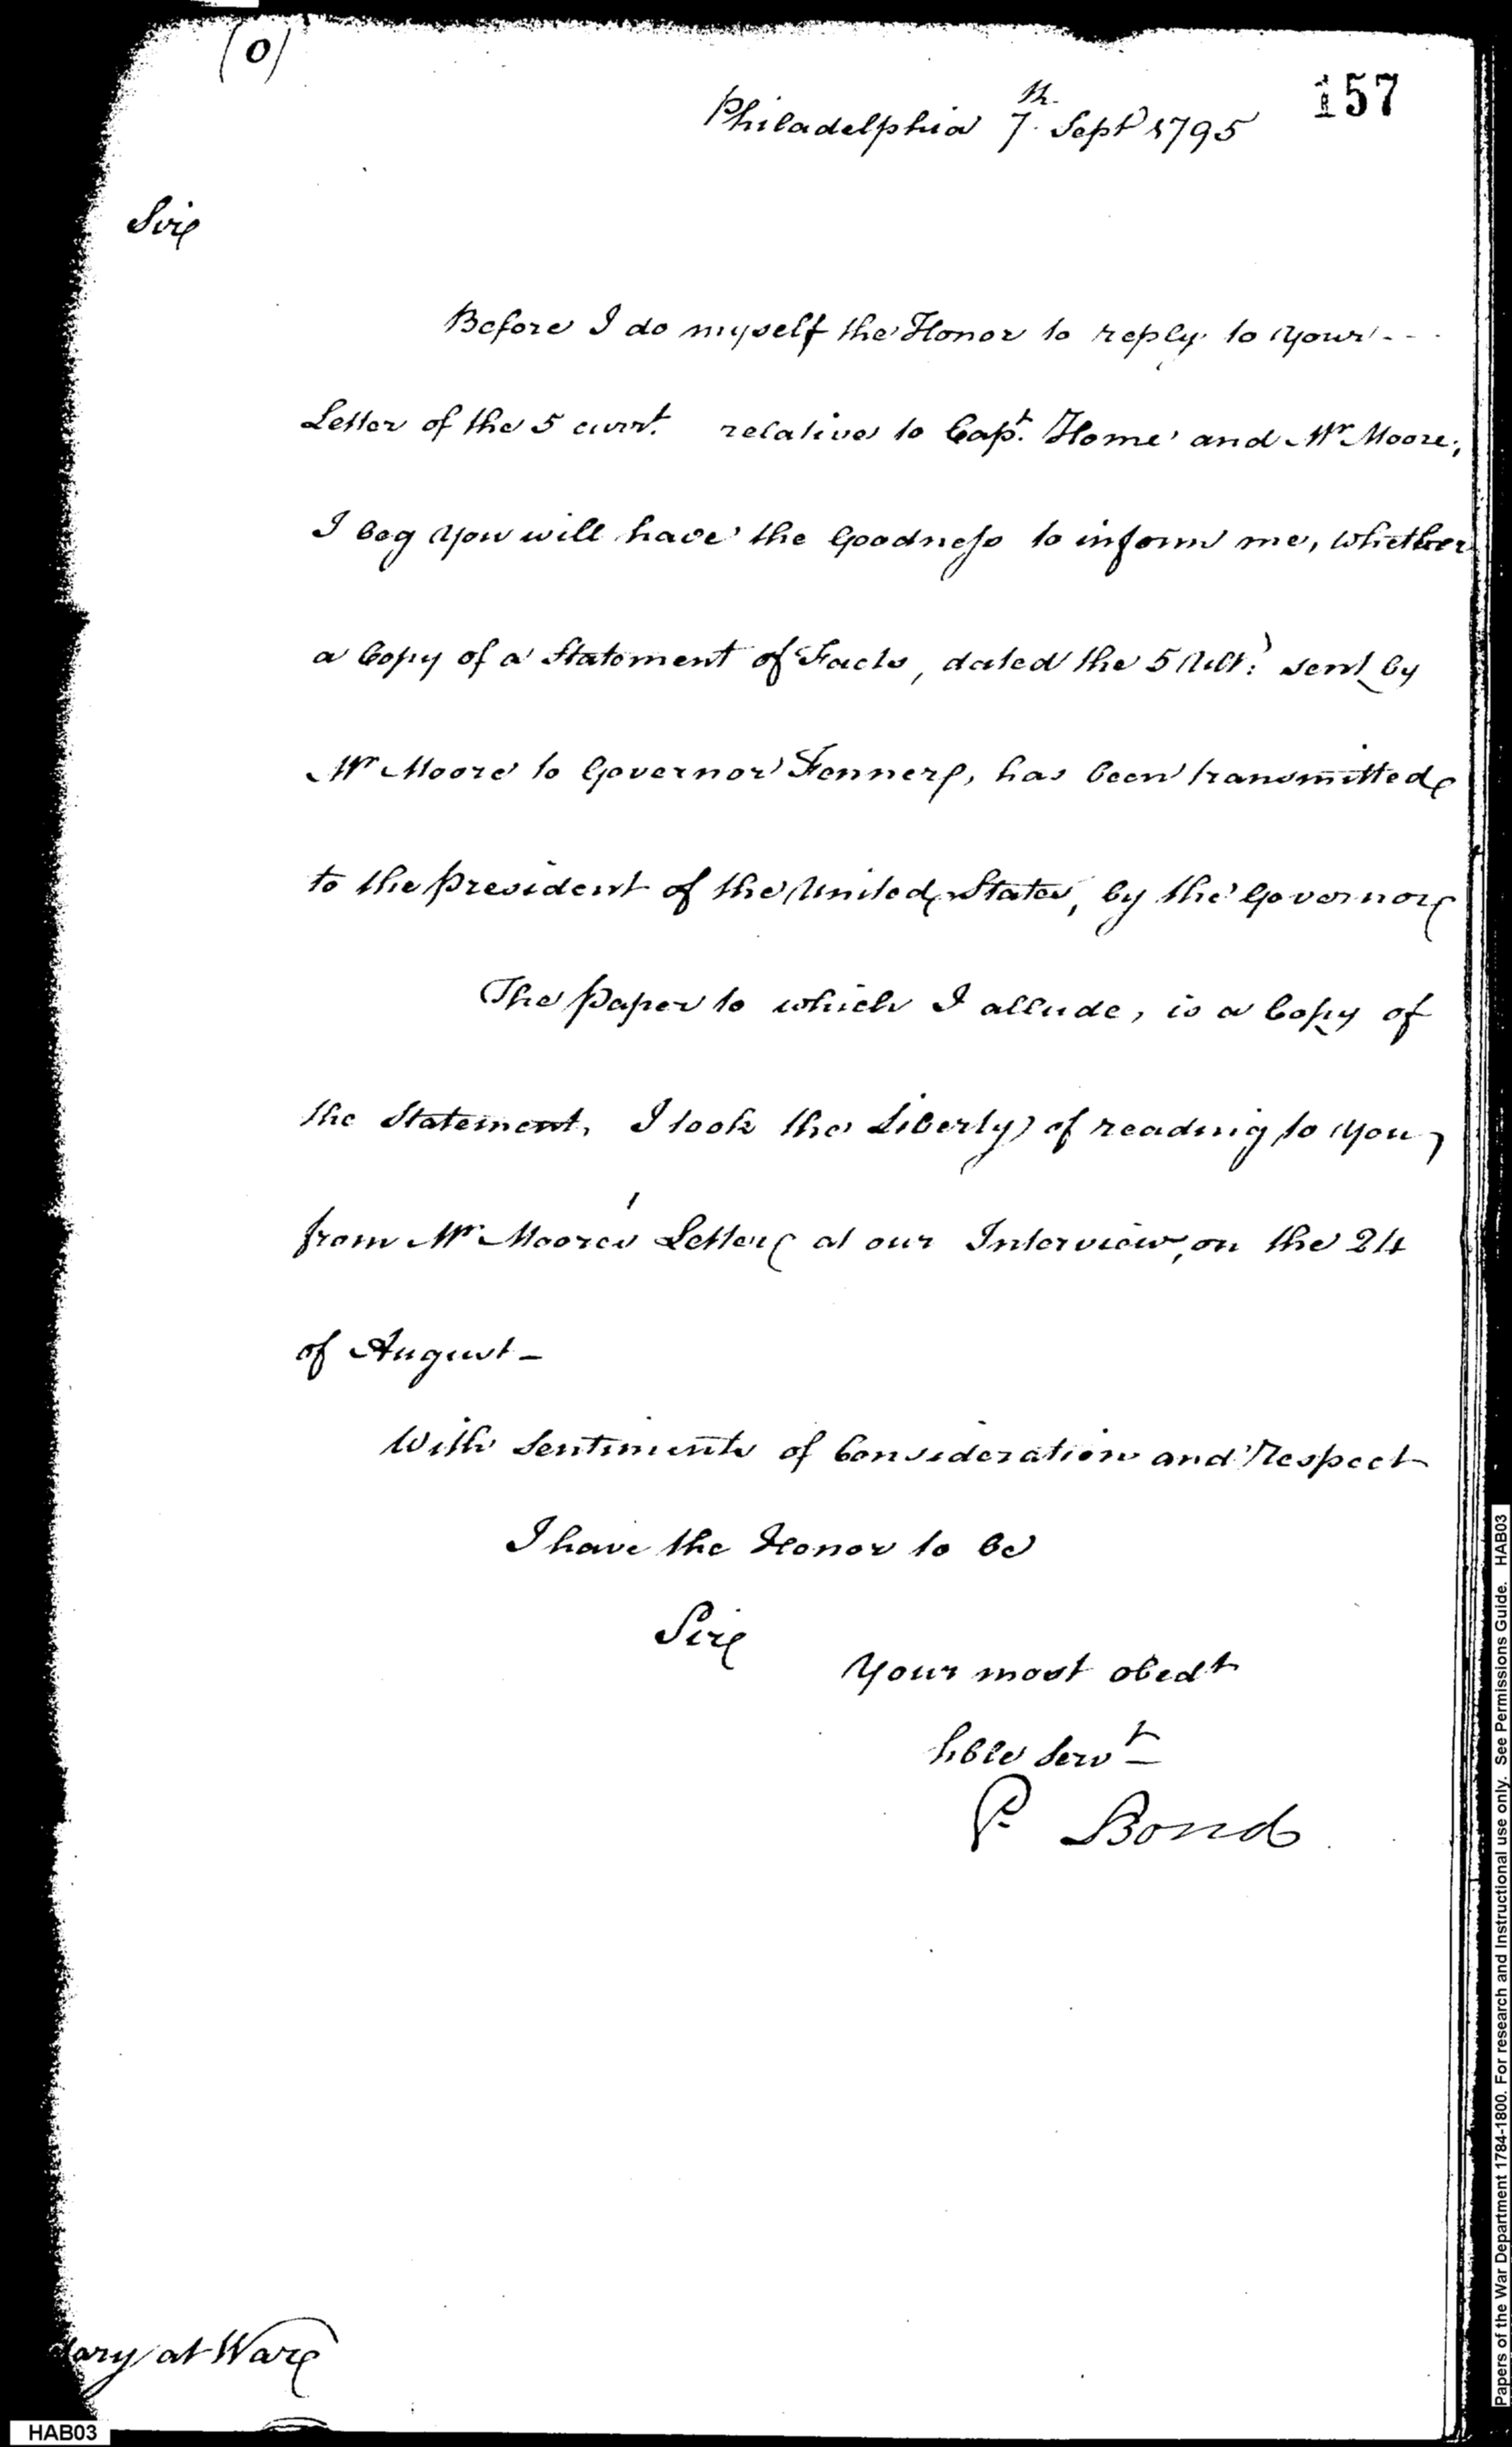 (O)
157
Philadelphia 7th. Sept 1795
Sir
Before I do myself the Honor to reply to your - - -
Letter of the 5 currt. relative to Capt. Home and Mr Moore;
I beg you will have the Goodness to inform me, whether
a Copy of a Statement of Facts, dated the 5 Ult: sent by
Mr Moore to Governor Fenner, has been transmitted
to the President of the United States, by the Governor
The Paper to which I allude, is a Copy of
the Statement, I took the Liberty of reading to you,
from Mr Moore's Letter at our Interview, on the 24
of August -
With Sentiments of Consideration and Respect
I have the Honor to be
Sir
Your most obedt
hble Servt
P. Bond
tary at War
HAB03
Papers of the War Department 1784-1800. For research and Instructional use only. See Permissions Guide. HAB03